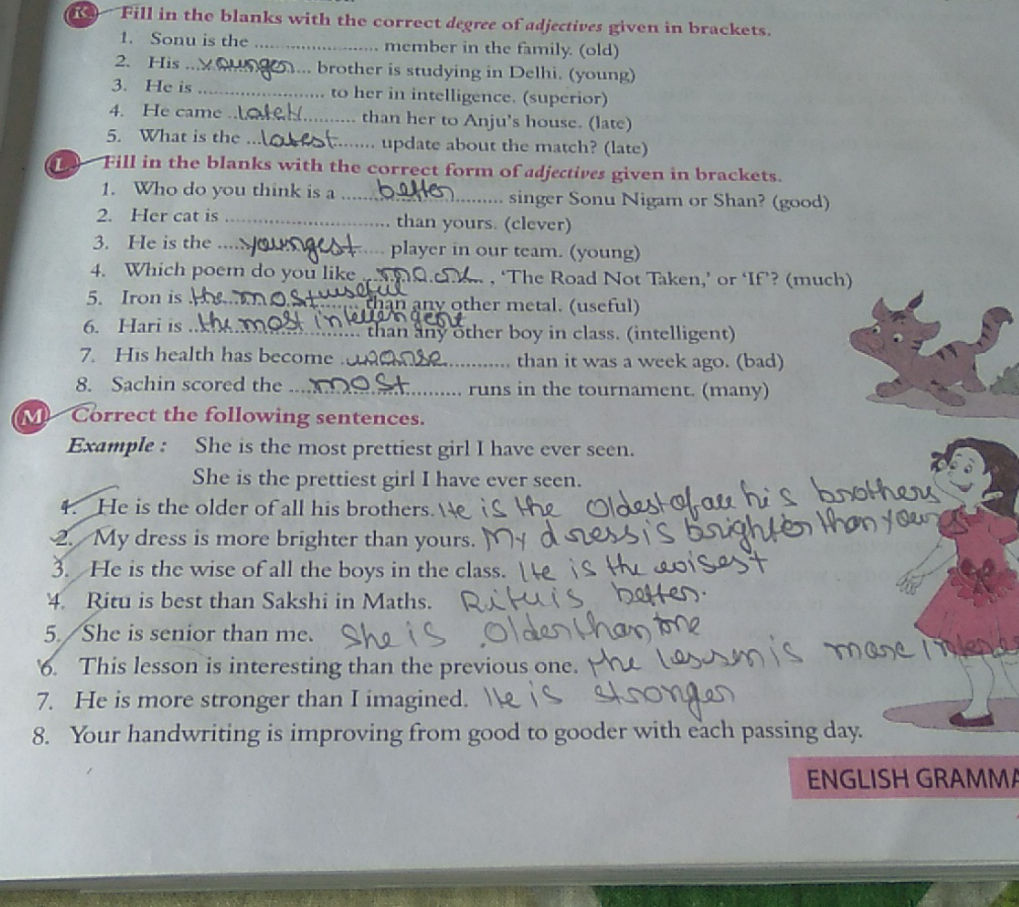 K Fill in the blanks with the correct degree of adjectives given in brackets.
1. Sonu is the ........................ member in the family. (old)
2. His ...younger... brother is studying in Delhi. (young)
3. He is ........................ to her in intelligence. (superior)
4. He came ............ than her to Anju's house. (late)
5. What is the ...latest....... update about the match? (late)
L Fill in the blanks with the correct form of adjectives given in brackets.
1. Who do you think is a ......better......... singer Sonu Nigam or Shan? (good)
2. Her cat is ................................ than yours. (clever)
3. He is the ....youngest.... player in our team. (young)
4. Which poem do you like .. , 'The Road Not Taken,' or 'If'? (much)
5. Iron is the most useful ....... than any other metal. (useful)
6. Hari is ..the most ................ than any other boy in class. (intelligent)
7. His health has become ............ than it was a week ago. (bad)
8. Sachin scored the ....most.......... runs in the tournament. (many)
M Correct the following sentences.
Example : She is the most prettiest girl I have ever seen.
She is the prettiest girl I have ever seen.
1. He is the older of all his brothers. He is the oldest of all his brothers
2. My dress is more brighter than yours. My dress is brighter than yours
3. He is the wise of all the boys in the class. He is the wisest
4. Ritu is best than Sakshi in Maths. Ritu is better.
5. She is senior than me. She is older than me
6. This lesson is interesting than the previous one. the is more
7. He is more stronger than I imagined. He is stronger
8. Your handwriting is improving from good to gooder with each passing day.
ENGLISH GRAMMA